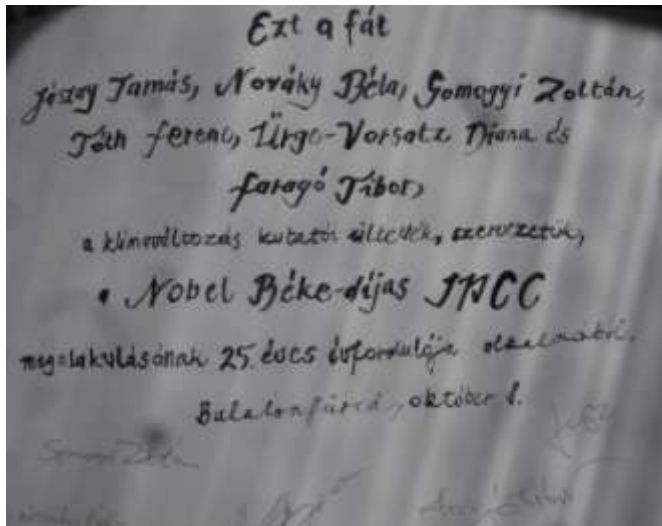 Ezt a fát
Jászay Tamás, Nováky Béla, Somogyi Zoltán,
Tóth Ferenc, Ürge-Vorsatz Diana és
Faragó Tibor,
a klímaváltozás kutatói ültették, szervezetük,
a Nobel Béke-díjas IPCC
megalakulásának 25. éves évfordulója alkalmából.
Balatonfüred, október 8.